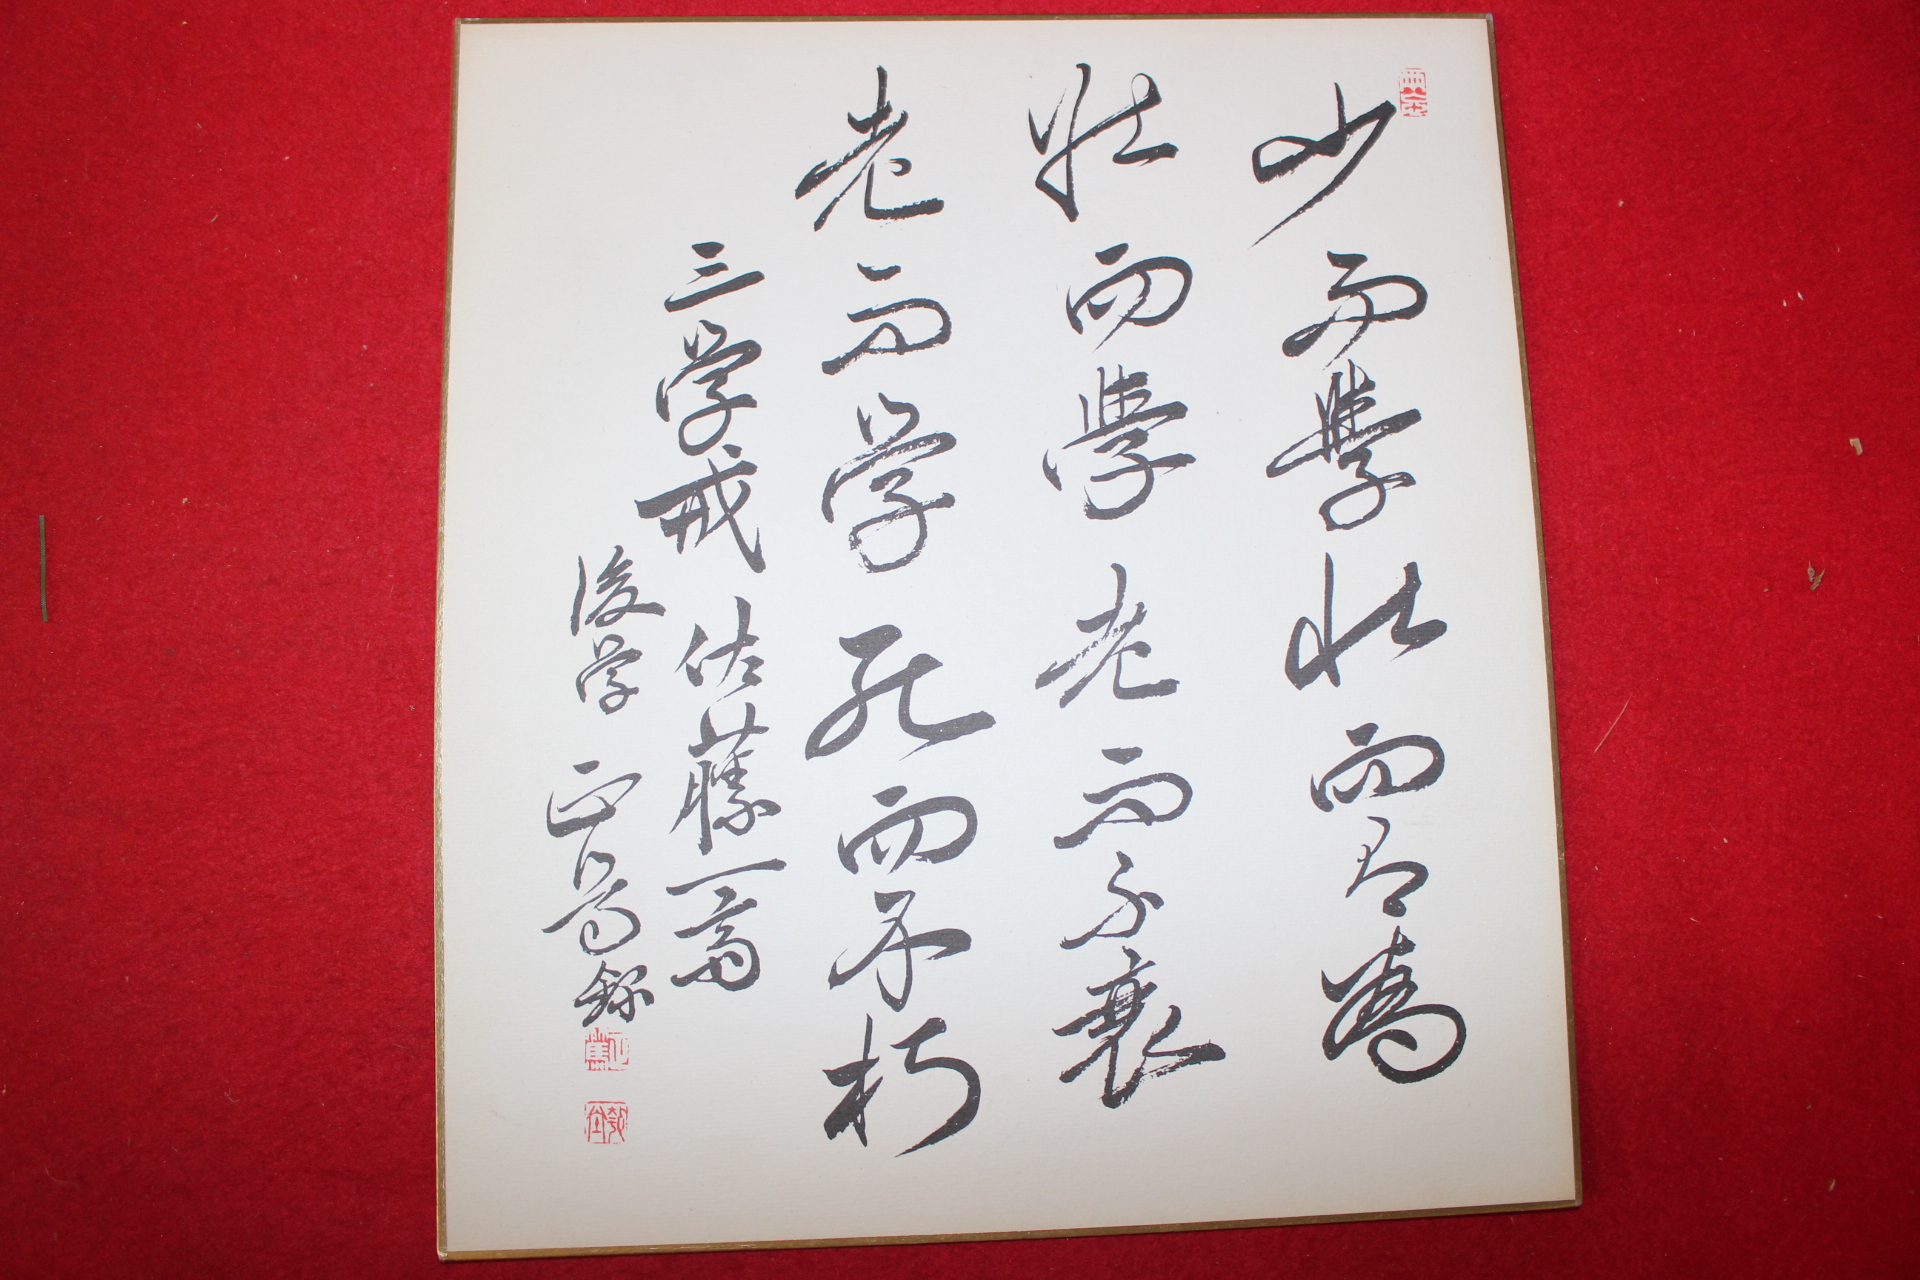 少而學壮而有為
壮而學老而不衰
老而学死而不朽
三学戒 佐藤一斎
後学 正篤録